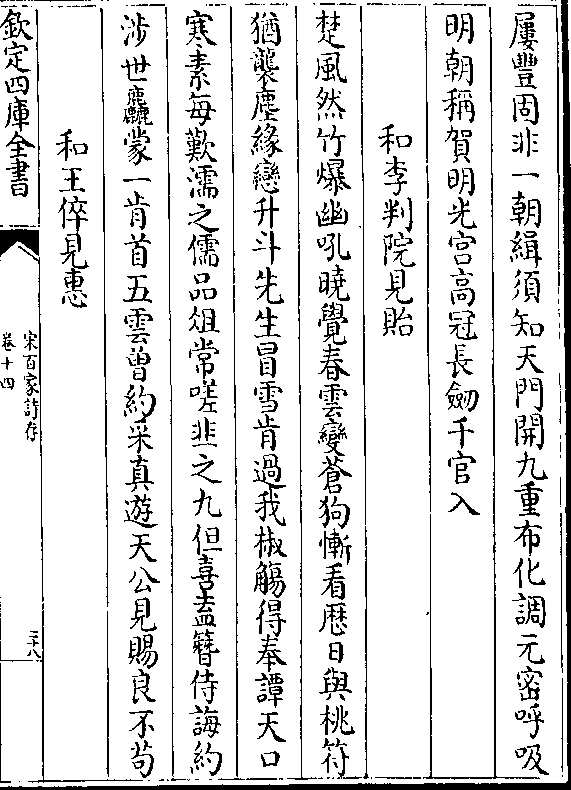 屢豐固非一朝緝須知天門開九重布化調元密呼吸
明朝稱賀明光宫高冠長劒千官入
和李判院見貽
楚風然竹爆幽吼曉覺春雲變蒼狗慚看厯日與桃符
猶襲塵緣戀升斗先生冒雪肯過我椒觴得奉譚天口
寒素每歎濡之儒品俎常嗟韭之九但喜盍簪侍誨約
涉世麤蒙一肯首五雲曾約采真遊天公見賜良不苟
和王倅見惠
欽定四庫全書
宋百家詩存
卷十四
二十八